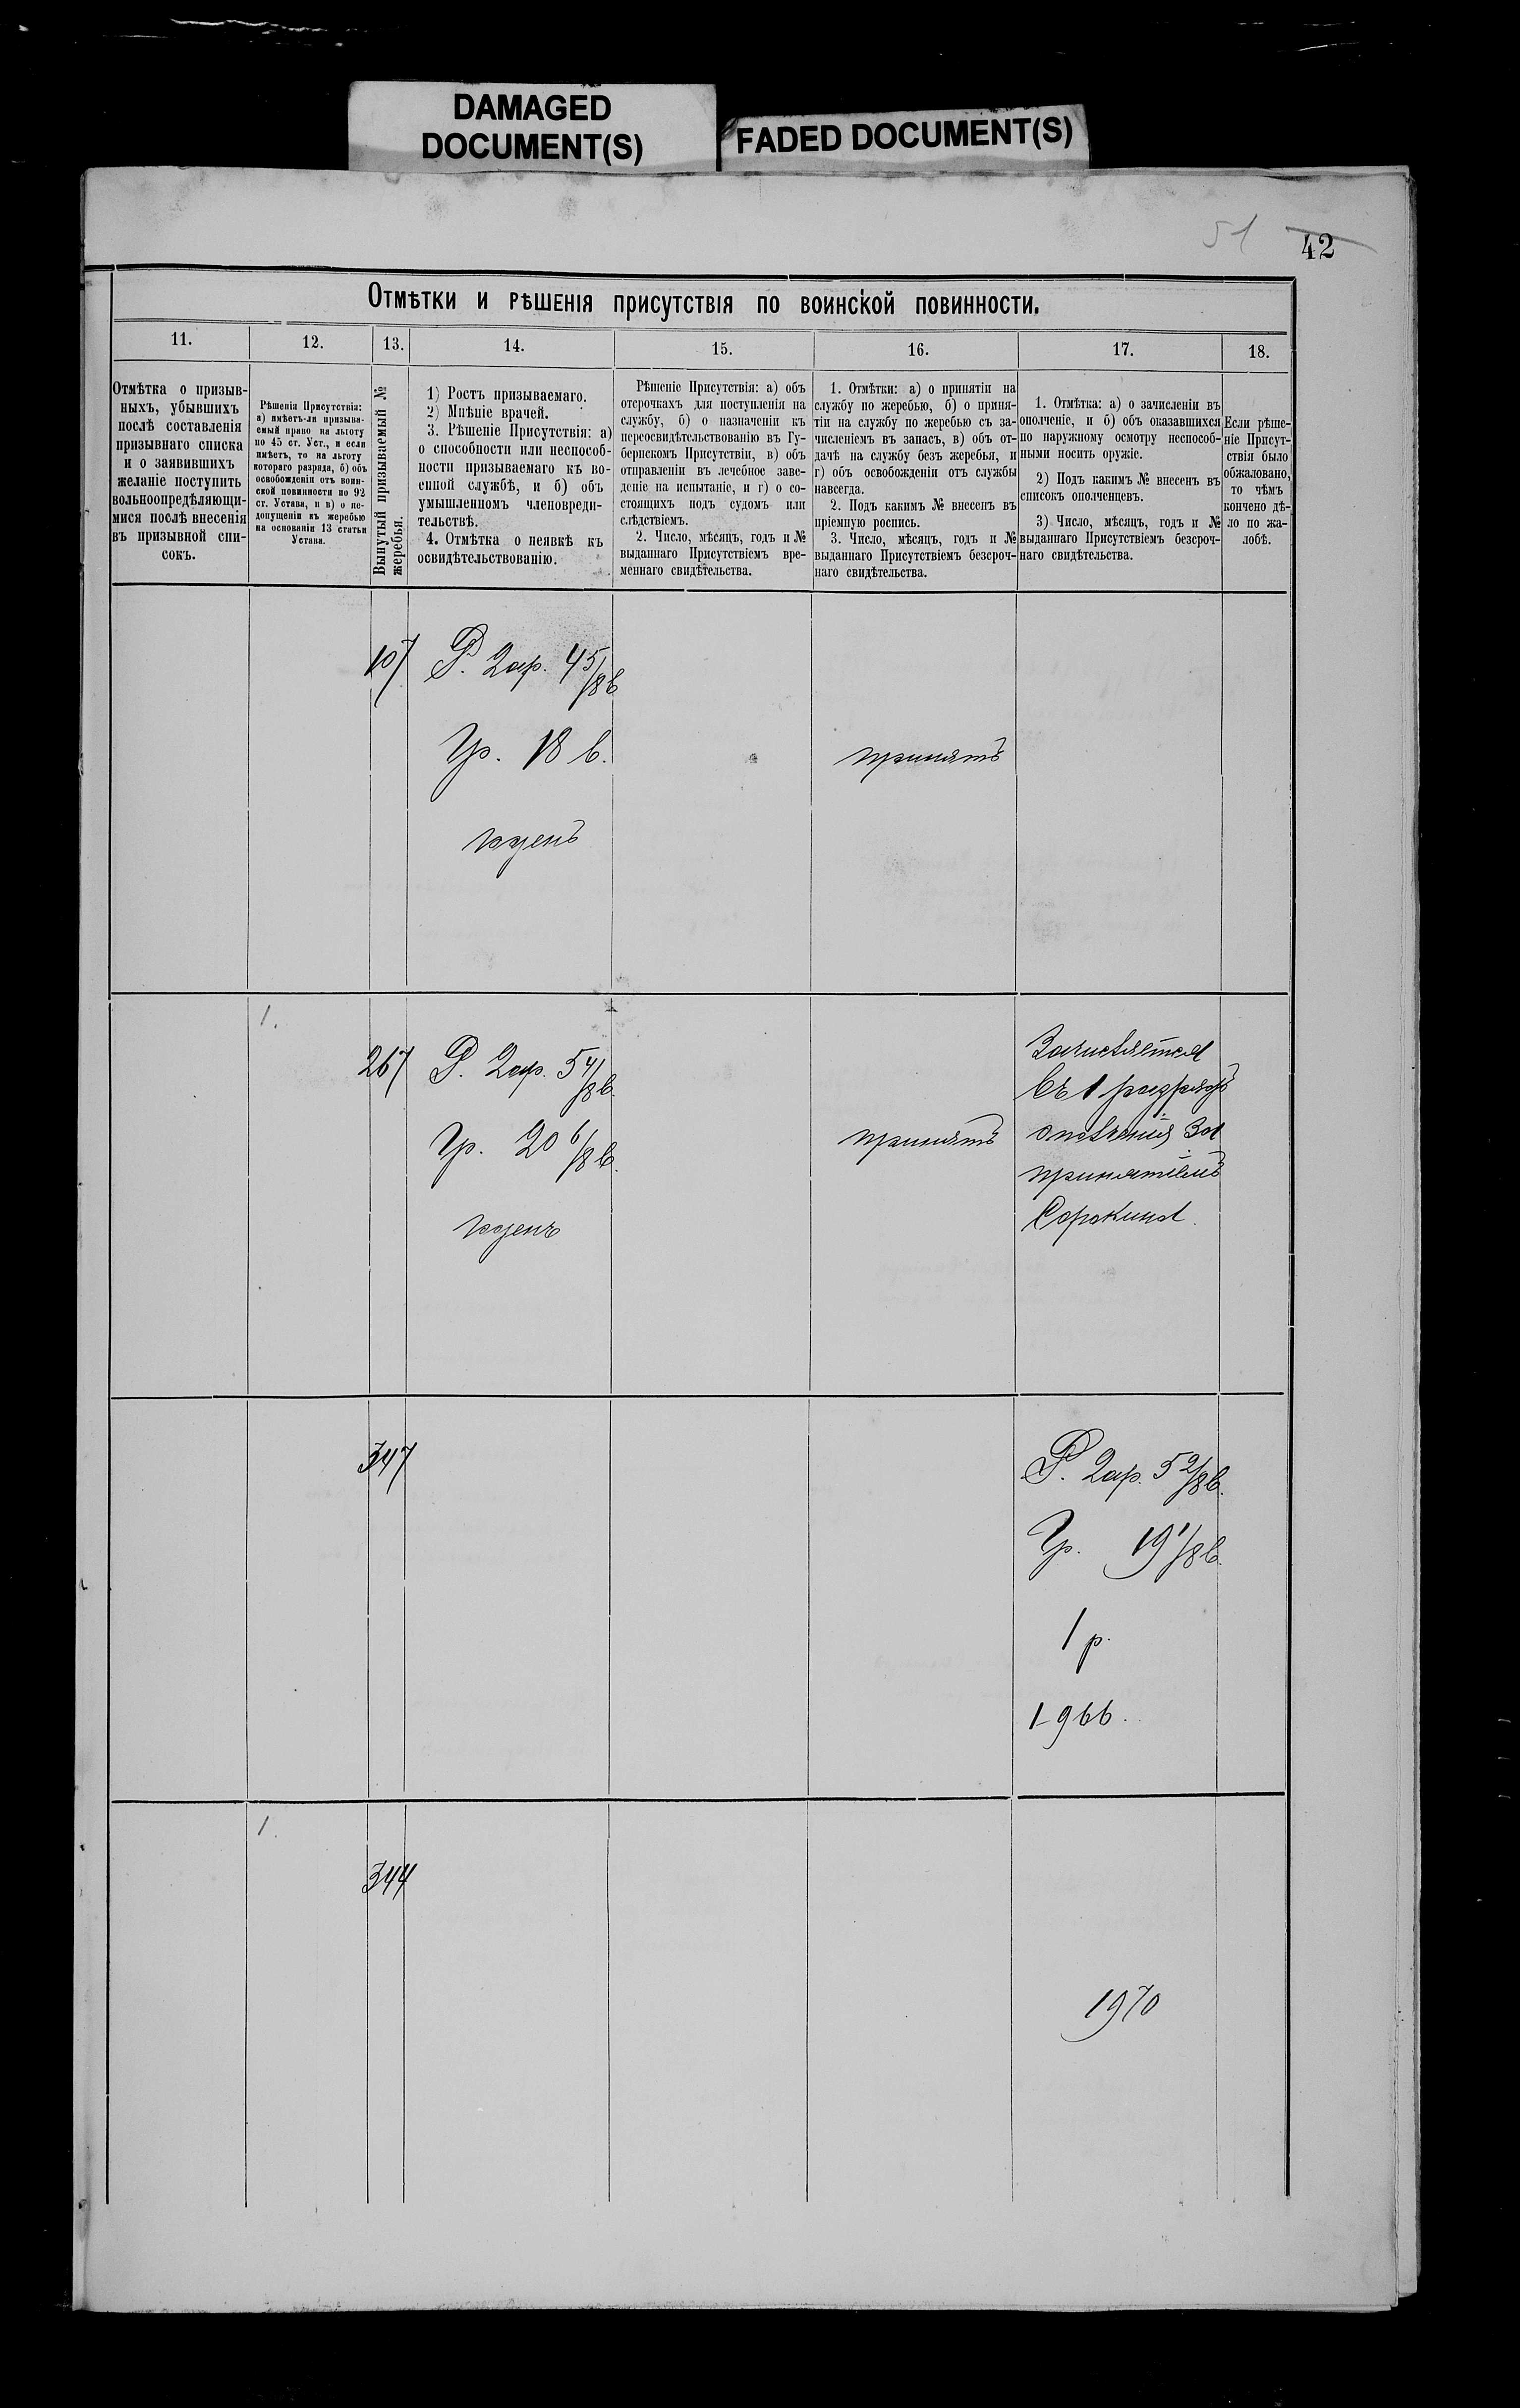 DAMAGED
DOCUMENT(S)
FADED DOCUMENT(S)
51
42
Отмѣтки и рѣшенія присутствія по воинской повинности.
11.
12.
13.
14.
15.
16.
17.
18.
Отмѣтка о призыв-
ныхъ, убывшихъ
послѣ составленія
призывнаго списка
и о заявившихъ
желаніе поступить
вольноопредѣляющи-
мися послѣ внесенія
въ призывной спи-
сокъ.
Рѣшенія Присутствія:
а) имѣетъ-ли призыва-
емый право на льготу
по 45 ст. Уст., и если
имѣетъ, то на льготу
котораго разряда, б) объ
освобожденіи отъ воин-
ской повинности по 92
ст. Устава, и в) о не-
допущеніи къ жеребью
на основаніи 13 статьи
Устава.
Вынутый призываемый №
жеребья.
1) Ростъ призываемаго.
2) Мнѣніе врачей.
3. Рѣшеніе Присутствія: а)
о способности или неспособ-
ности призываемаго къ во-
енной службѣ, и б) объ
умышленномъ членовреди-
тельствѣ.
4. Отмѣтка о неявкѣ къ
освидѣтельствованію.
Рѣшеніе Присутствія: а) объ
отсрочкахъ для поступленія на
службу, б) о назначеніи къ
переосвидѣтельствованію въ Гу-
бернскомъ Присутствіи, в) объ
отправленіи въ лечебное заве-
деніе на испытаніе, и г) о со-
стоящихъ подъ судомъ или
слѣдствіемъ.
2. Число, мѣсяцъ, годъ и №
выданнаго Присутствіемъ вре-
меннаго свидѣтельства.
1. Отмѣтки: а) о принятіи на
службу по жеребью, б) о приня-
тіи на службу по жеребью съ за-
численіемъ въ запасъ, в) объ от-
дачѣ на службу безъ жеребья, и
г) объ освобожденіи отъ службы
навсегда.
2. Подъ какимъ № внесенъ въ
пріемную роспись.
3. Число, мѣсяцъ, годъ и №
выданнаго Присутствіемъ безсроч-
наго свидѣтельства.
1. Отмѣтка: а) о зачисленіи въ
ополченіе, и б) объ оказавшихся
по наружному осмотру неспособ-
ными носить оружіе.
2) Подъ какимъ № внесенъ въ
списокъ ополченцевъ.
3) Число, мѣсяцъ, годъ и №
выданнаго Присутствіемъ безсроч-
наго свидѣтельства.
Если рѣше-
ніе Присут-
ствія было
обжаловано,
то чѣмъ
кончено дѣ-
ло по жа-
лобѣ.
107
Р. 2 ар. 4 5/8 в
Гр. 18 в.
годенъ
принятъ
1.
267
Р. 2 ар. 5 4/8 в.
Гр. 20 6/8 в.
годенъ
принятъ
Зачисляется
въ 1 разрядъ
ополченія за
принятіемъ
Сорокина.
347
Р. 2 ар. 5 2/8 в.
Гр. 19 1/8 в.
1 р.
1966.
1.
344
1970